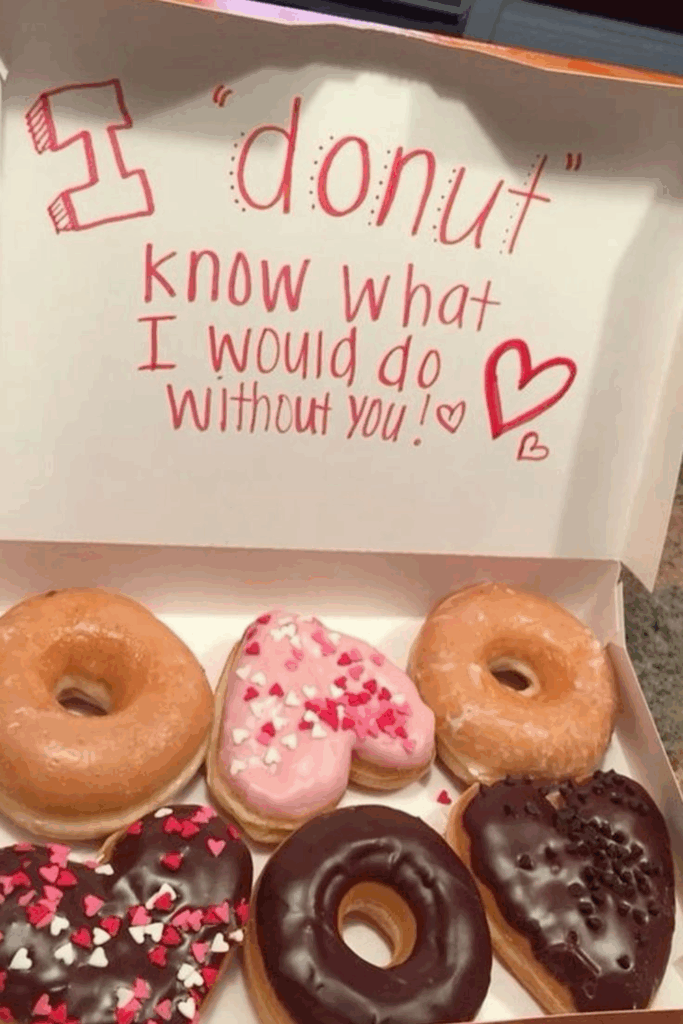 I "donut"
know what
I would do
without you!